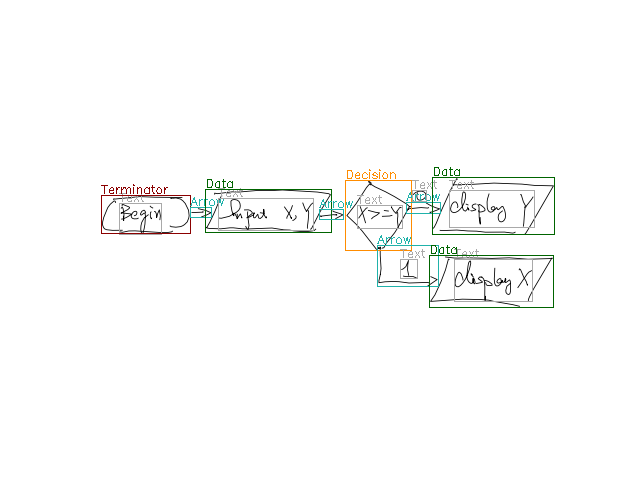 Terminator
Text
Begin
Arrow
Data
Text
Input X, Y
Arrow
Decision
Text
X>=Y
Arrow
Text
0
Data
Text
display Y
Arrow
Text
1
Data
Text
display X